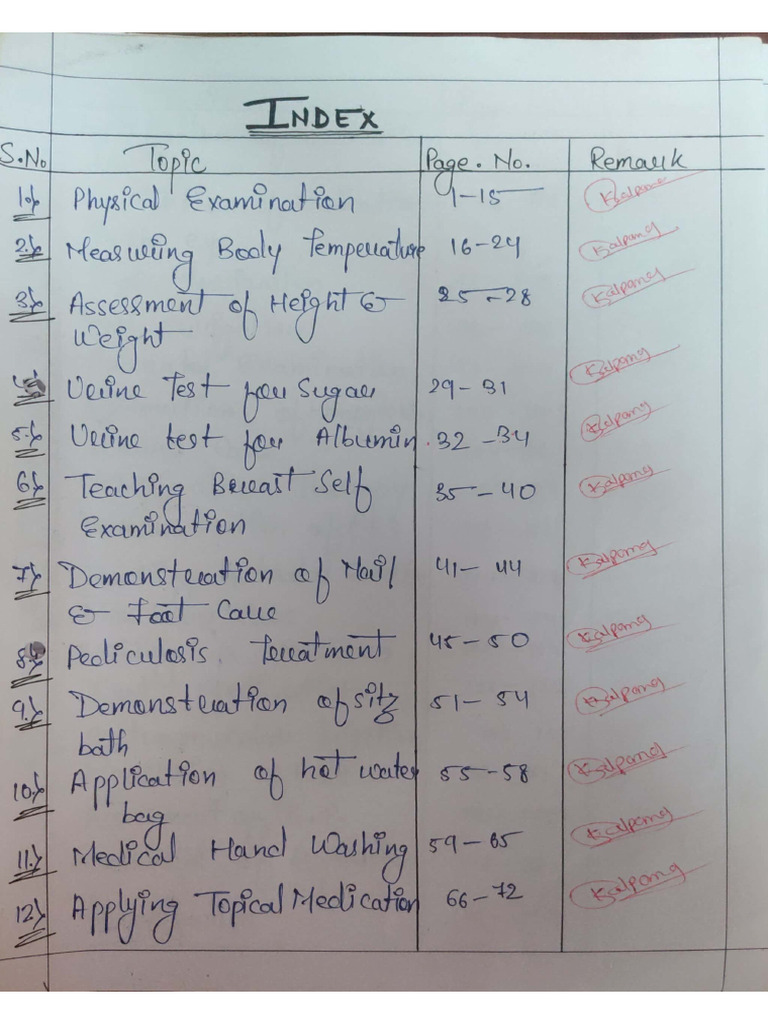 INDEX
S.No Topic Page. No. Remark
1. Physical Examination 1-15 Kalpana
2. Measuring Body Temperature 16-24 Kalpana
3. Assessment of Height & 25-28 Kalpana
Weight
4. Urine Test for Sugar 29-31 Kalpana
5. Urine test for Albumin. 32-34 Kalpana
6. Teaching Breast Self 35-40 Kalpana
Examination
7. Demonstration of Nail 41-44 Kalpana
& Foot Care
8. Pediculosis Treatment 45-50 Kalpana
9. Demonstration of sitz 51-54 Kalpana
bath
10. Application of hot water 55-58 Kalpana
bag
11. Medical Hand Washing 59-65 Kalpana
12. Applying Topical Medication 66-72 Kalpana